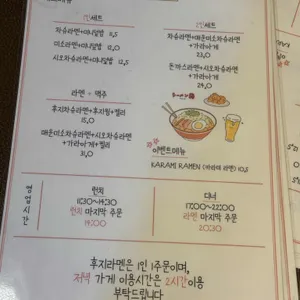 1인세트
차슈라멘+미니덮밥 11,5
미소라멘+미니덮밥 12,0
시오차슈라멘+미니덮밥 12,5
2인세트
차슈라멘+매운미소차슈라멘
+가라아게
23,0
돈까스라멘+시오차슈라멘
+가라아게
29,0
라멘 + 맥주
후지차슈라멘+후지윙+젤리
15,0
매운미소차슈라멘+시오차슈라멘
+가라아게+젤리
31,0
이벤트메뉴
KARAMI RAMEN (카라미 라멘) 10,5
영업시간
런치
11:30~14:30
런치 마지막 주문
14:00
디너
17:00~22:00
라멘 마지막 주문
20:30
후지라멘은 1인 1주문이며,
저녁 가게 이용시간은 2시간이용
부탁드립니다